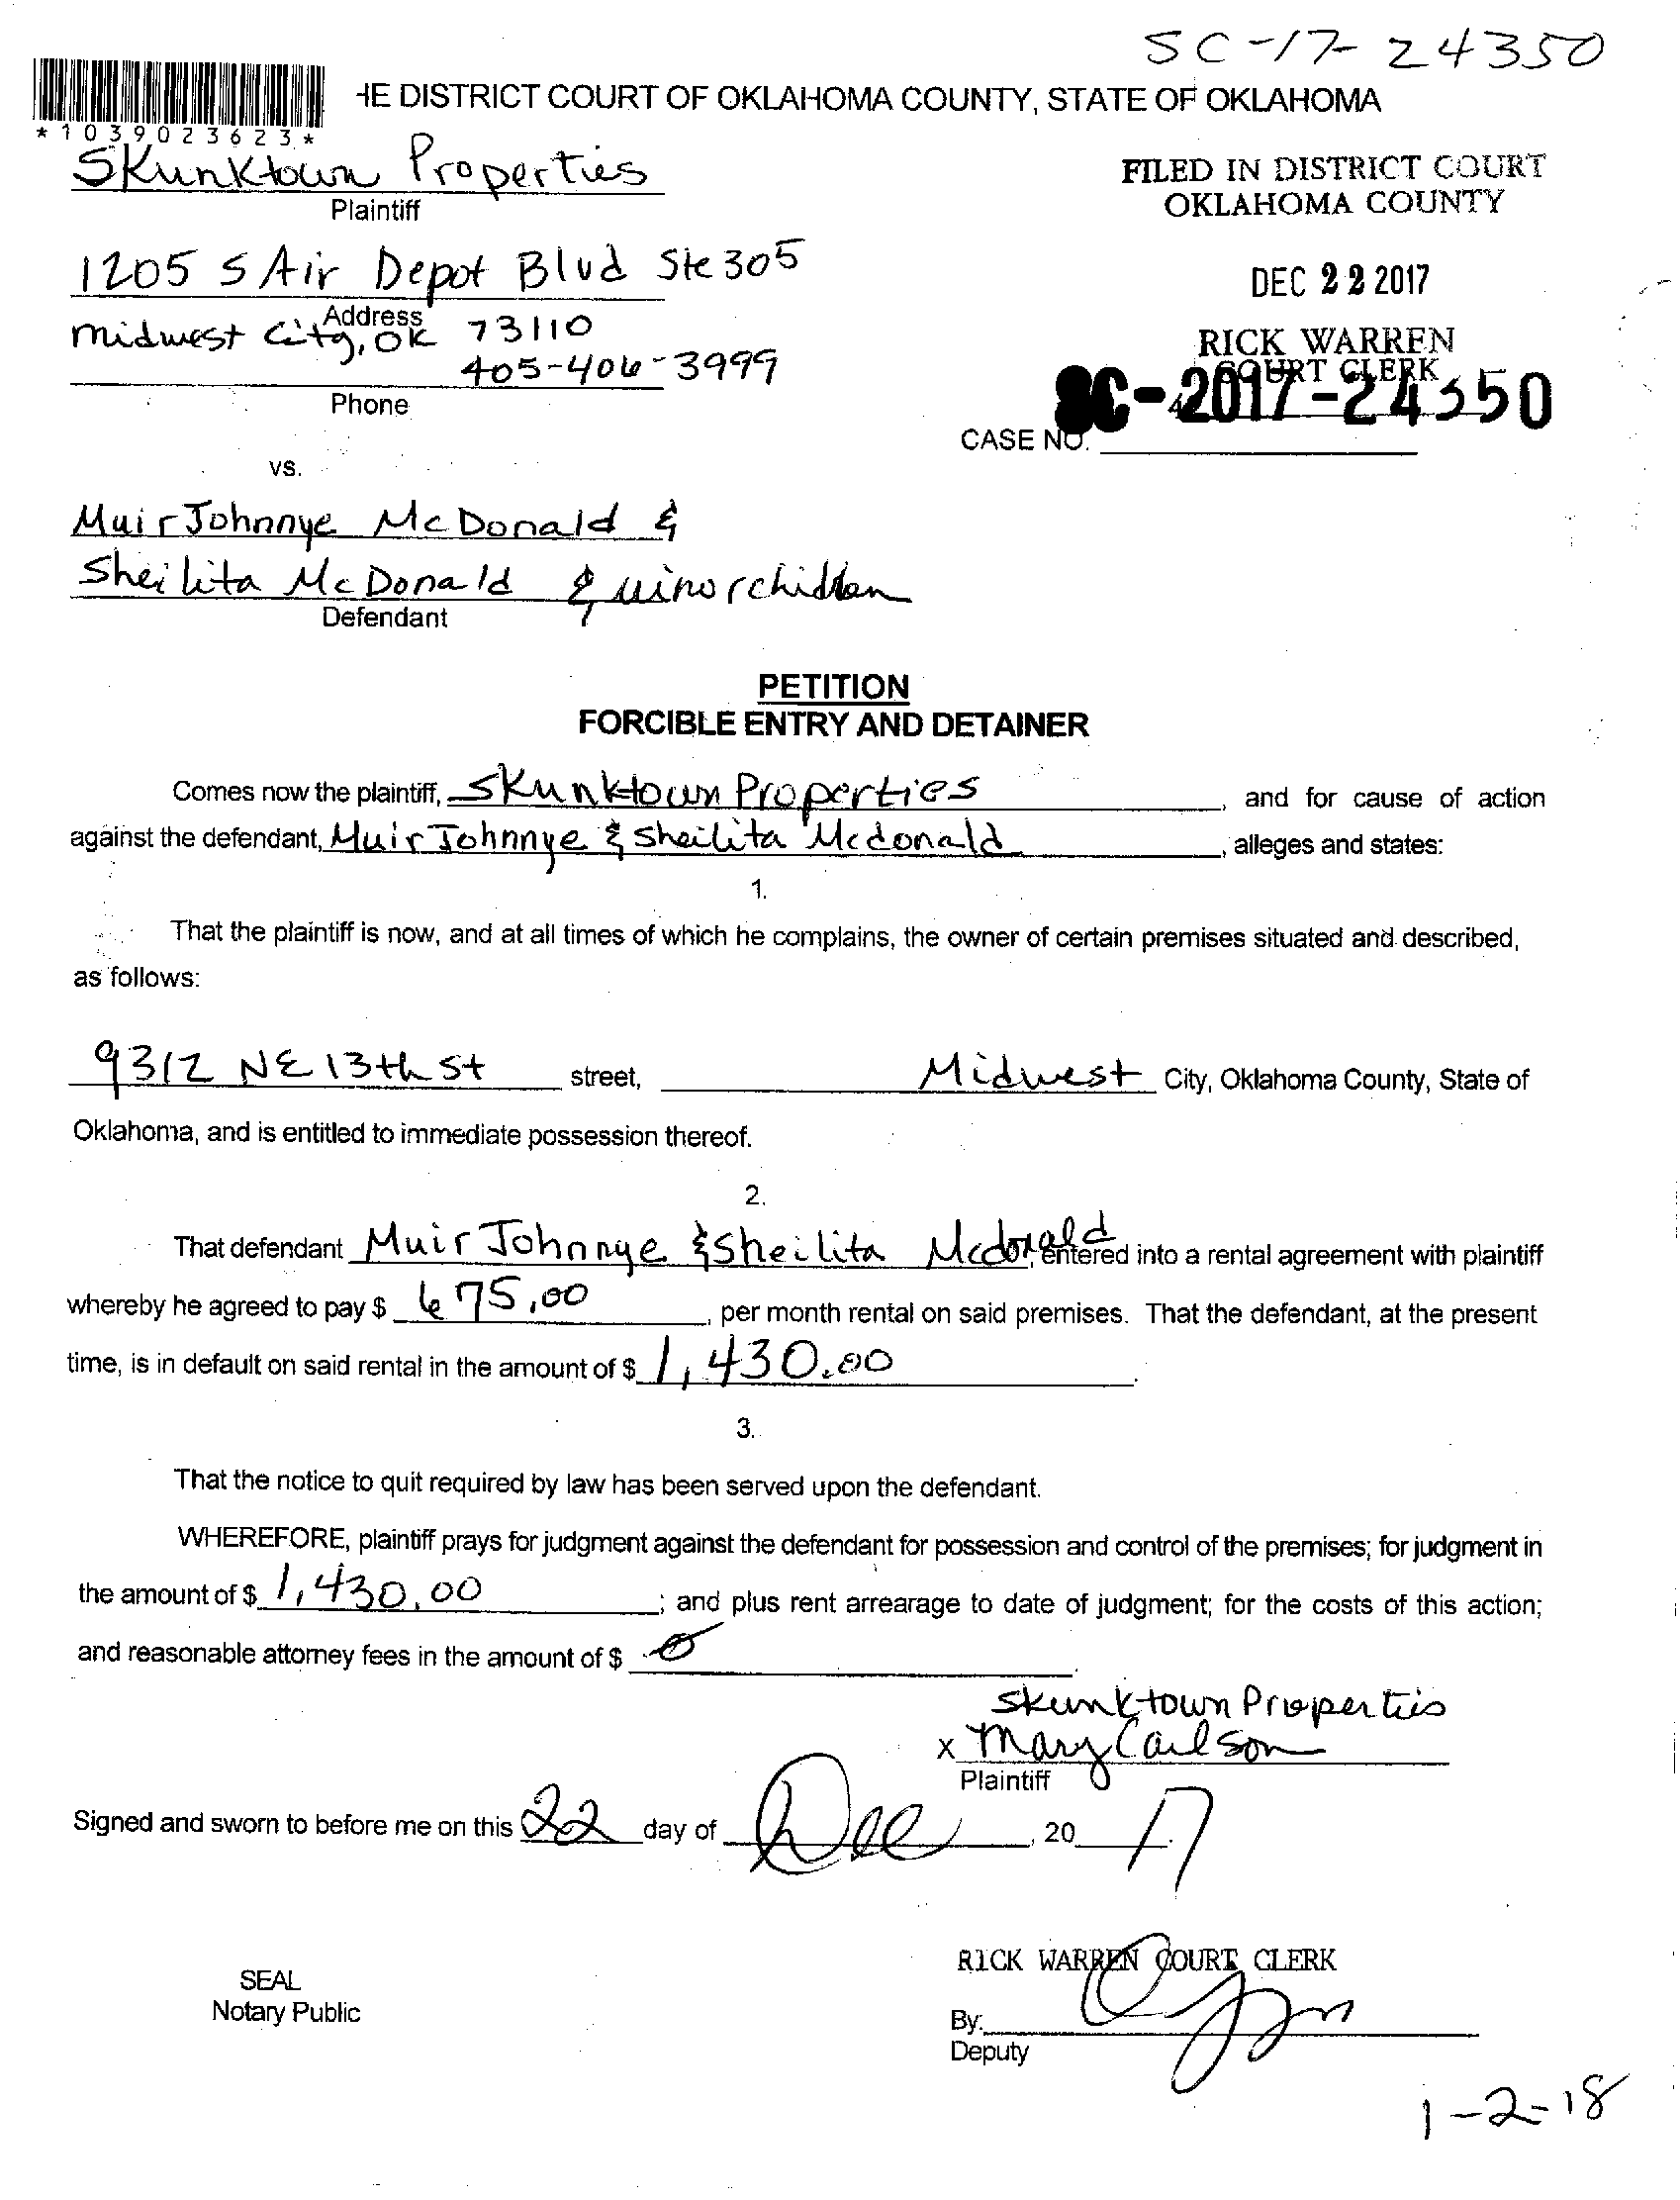 SC-17-24350
HE DISTRICT COURT OF OKLAHOMA COUNTY, STATE OF OKLAHOMA
*1039023623*
Skunktown Properties
Plaintiff
FILED IN DISTRICT COURT
OKLAHOMA COUNTY
1205 S Air Depot Blvd Ste 305
Address
DEC 22 2017
Midwest City, OK 73110
RICK WARREN
COURT CLERK
405-406-3999
Phone
SC-2017-24350
CASE NO.
vs.
Muir Johnnye McDonald &
Sheilita McDonald & minor children
Defendant
PETITION
FORCIBLE ENTRY AND DETAINER
Comes now the plaintiff, Skunktown Properties, and for cause of action
against the defendant, Muir Johnnye & Sheilita Mcdonald, alleges and states:
1.
That the plaintiff is now, and at all times of which he complains, the owner of certain premises situated and described,
as follows:
9312 NE 13th St street, Midwest City, Oklahoma County, State of
Oklahoma, and is entitled to immediate possession thereof.
2.
That defendant Muir Johnnye & Sheilita Mcdonald, entered into a rental agreement with plaintiff
whereby he agreed to pay $ 675.00, per month rental on said premises. That the defendant, at the present
time, is in default on said rental in the amount of $ 1,430.00.
3.
That the notice to quit required by law has been served upon the defendant.
WHEREFORE, plaintiff prays for judgment against the defendant for possession and control of the premises; for judgment in
the amount of $ 1,430.00; and plus rent arrearage to date of judgment; for the costs of this action;
and reasonable attorney fees in the amount of $ 0.
Skunktown Properties
x Mary Carlson
Plaintiff
Signed and sworn to before me on this 22 day of Dec, 2017.
RICK WARREN COURT CLERK
SEAL
Notary Public
By:
Deputy
1-2-18